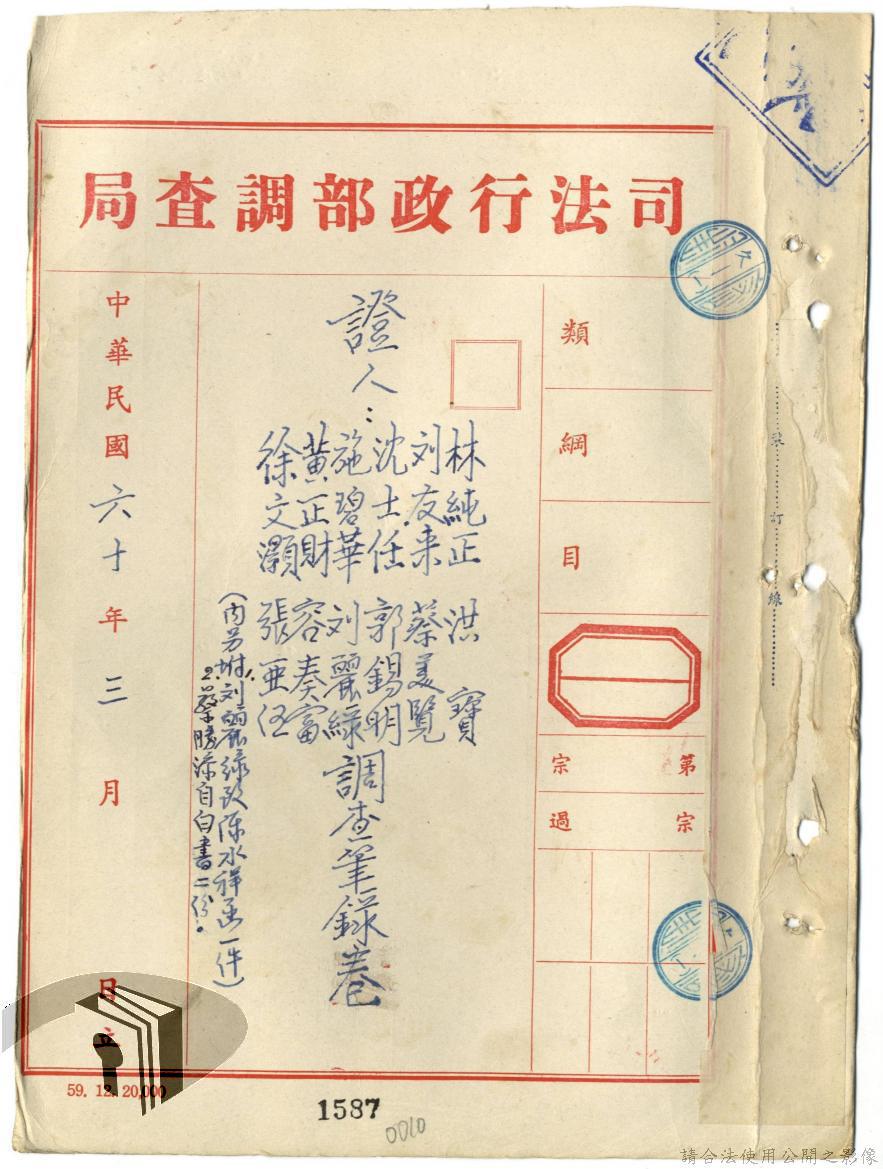 司法行政部調查局
類
綱
目
第宗
宗過
裝訂線
證人：
林純正 洪寶
刘友来 蔡美覽
沈士任 郭錫明
施碧華 刘麗綠
黃正財 容奏富
徐文灝 張亜伍
調查筆錄卷
(內另附1.刘麗綠致陳水祥函一件)
2.蔡勝添自白書二份。
中華民國六十年三月日立
59. 12. 20,000
1587
0010
請合法使用公開之影像